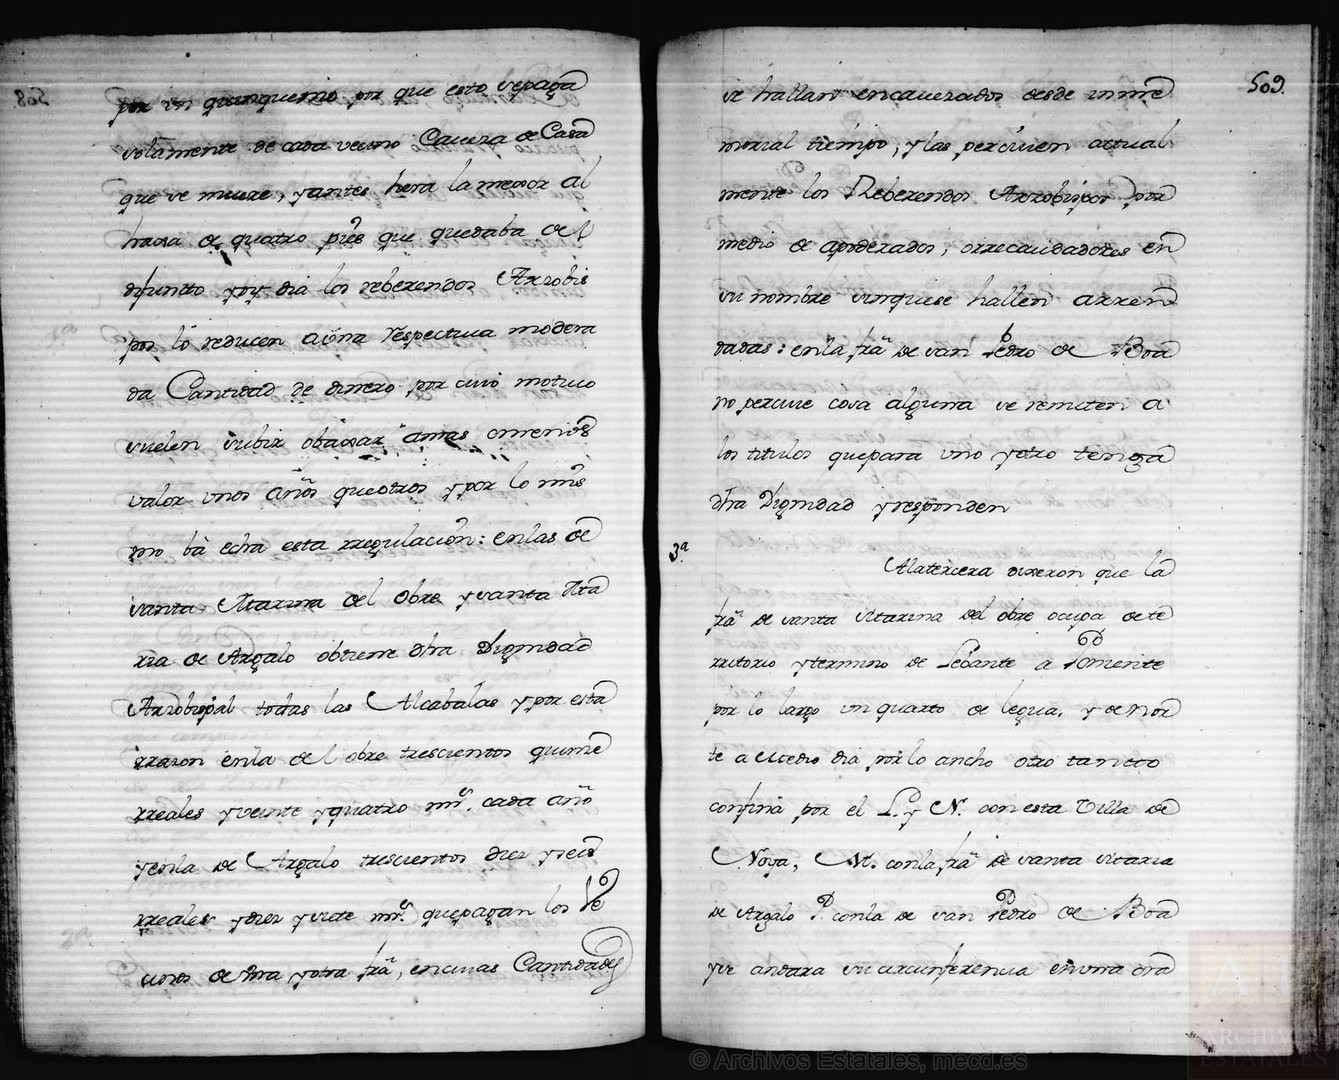 por un quinquenio, por que esto se paga
solamente de cada vecino Caveza de Casa
que se muere, y antes hera la mejor al
haxa de quatro pies que quedaba del
difunto y oy dia los reberendos Arzobis
pos lo reducen a una respectiva modera
da Cantidad de dinero, por cuio motivo
suelen subir o baxar a mas o menos
valor unos años que otros y por lo mis
mo ba echa esta rregulacion: en las de
santa Marina del obre y santa Ma
ria de Argalo obtiene dha Dignidad
Arzobispal todas las Alcabalas y por esta
rrazon en la del obre trescientos quince
rreales y veinte y quatro mrs. cada año
y en la de Argalo trescientos diez y seis
rreales y diez y siete mrs. que pagan los Ve
cinos de una y otra fra, en cuias Cantidades
509.
se hallan encavezados desde inme
morial tiempo, y las perciven actual
mente los Reberendos Arzobispos por
medio de apoderados, o rrecaudadores en
su nombre sin que se hallen arren
dadas: en la fra de san Pedro de Boa
no percive cosa alguna se remiten a
los titulos que para uno y otro tenga
dha Dignidad y responden
3a.
A la tercera dixeron que la
fra de santa Marina del obre ocupa de te
rritorio y termino de Lebante a Poniente
por lo largo un quarto de legua, y de Nor
te a Medio dia por lo ancho otro tanto
confina por el L. y N. con esta Villa de
Noya, M. con la fra de santa Maria
de Argalo P. con la de san Pedro de Boa
y se andara su circunferencia en una ora
© Archivos Estatales, mecd.es
ARCHIVOS
ESTATALES